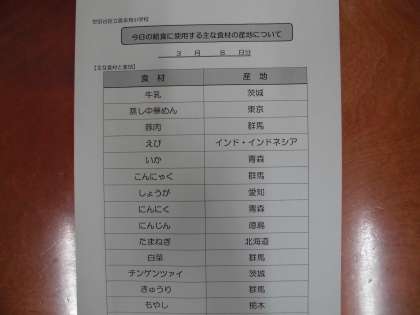 今日の給食に使用する主な食材の産地について
3 月 日分
【主な食材と産地】
食 材 産 地
牛乳 茨城
蒸し中華めん 東京
豚肉 群馬
えび インド・インドネシア
いか 青森
こんにゃく 群馬
しょうが 愛知
にんにく 青森
にんじん 徳島
たまねぎ 北海道
白菜 群馬
チンゲンツァイ 茨城
きゅうり 群馬
もやし 栃木